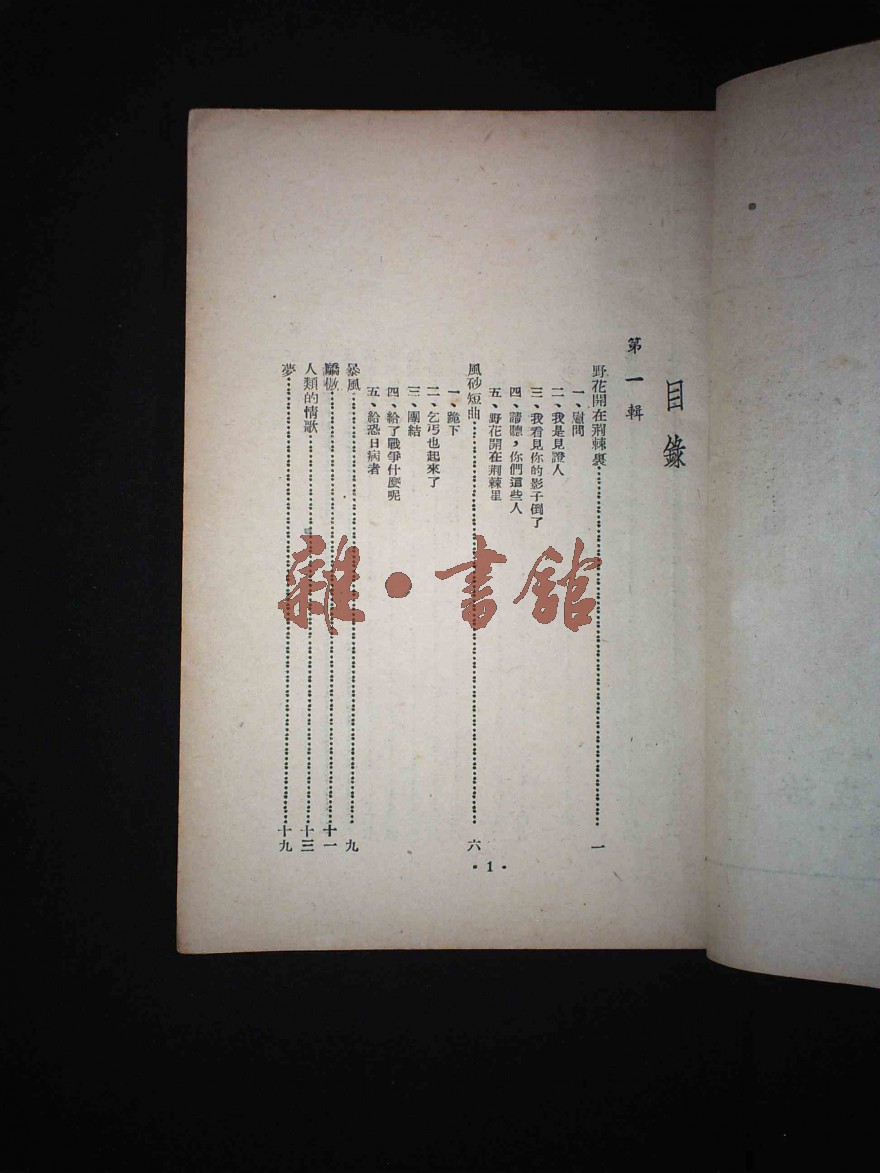 目錄
第一輯
野花開在荆棘裏……一
一、慰問
二、我是見證人
三、我看見你的影子倒了
四、請聽，你們這些人
五、野花開在荆棘里
風砂短曲……六
一、跪下
二、乞丐也起來了
三、團結
四、給了戰爭什麼呢
五、給恐日病者
暴風……九
驕傲……十一
人類的情歌……十三
夢……十九
·1·
雜·書館